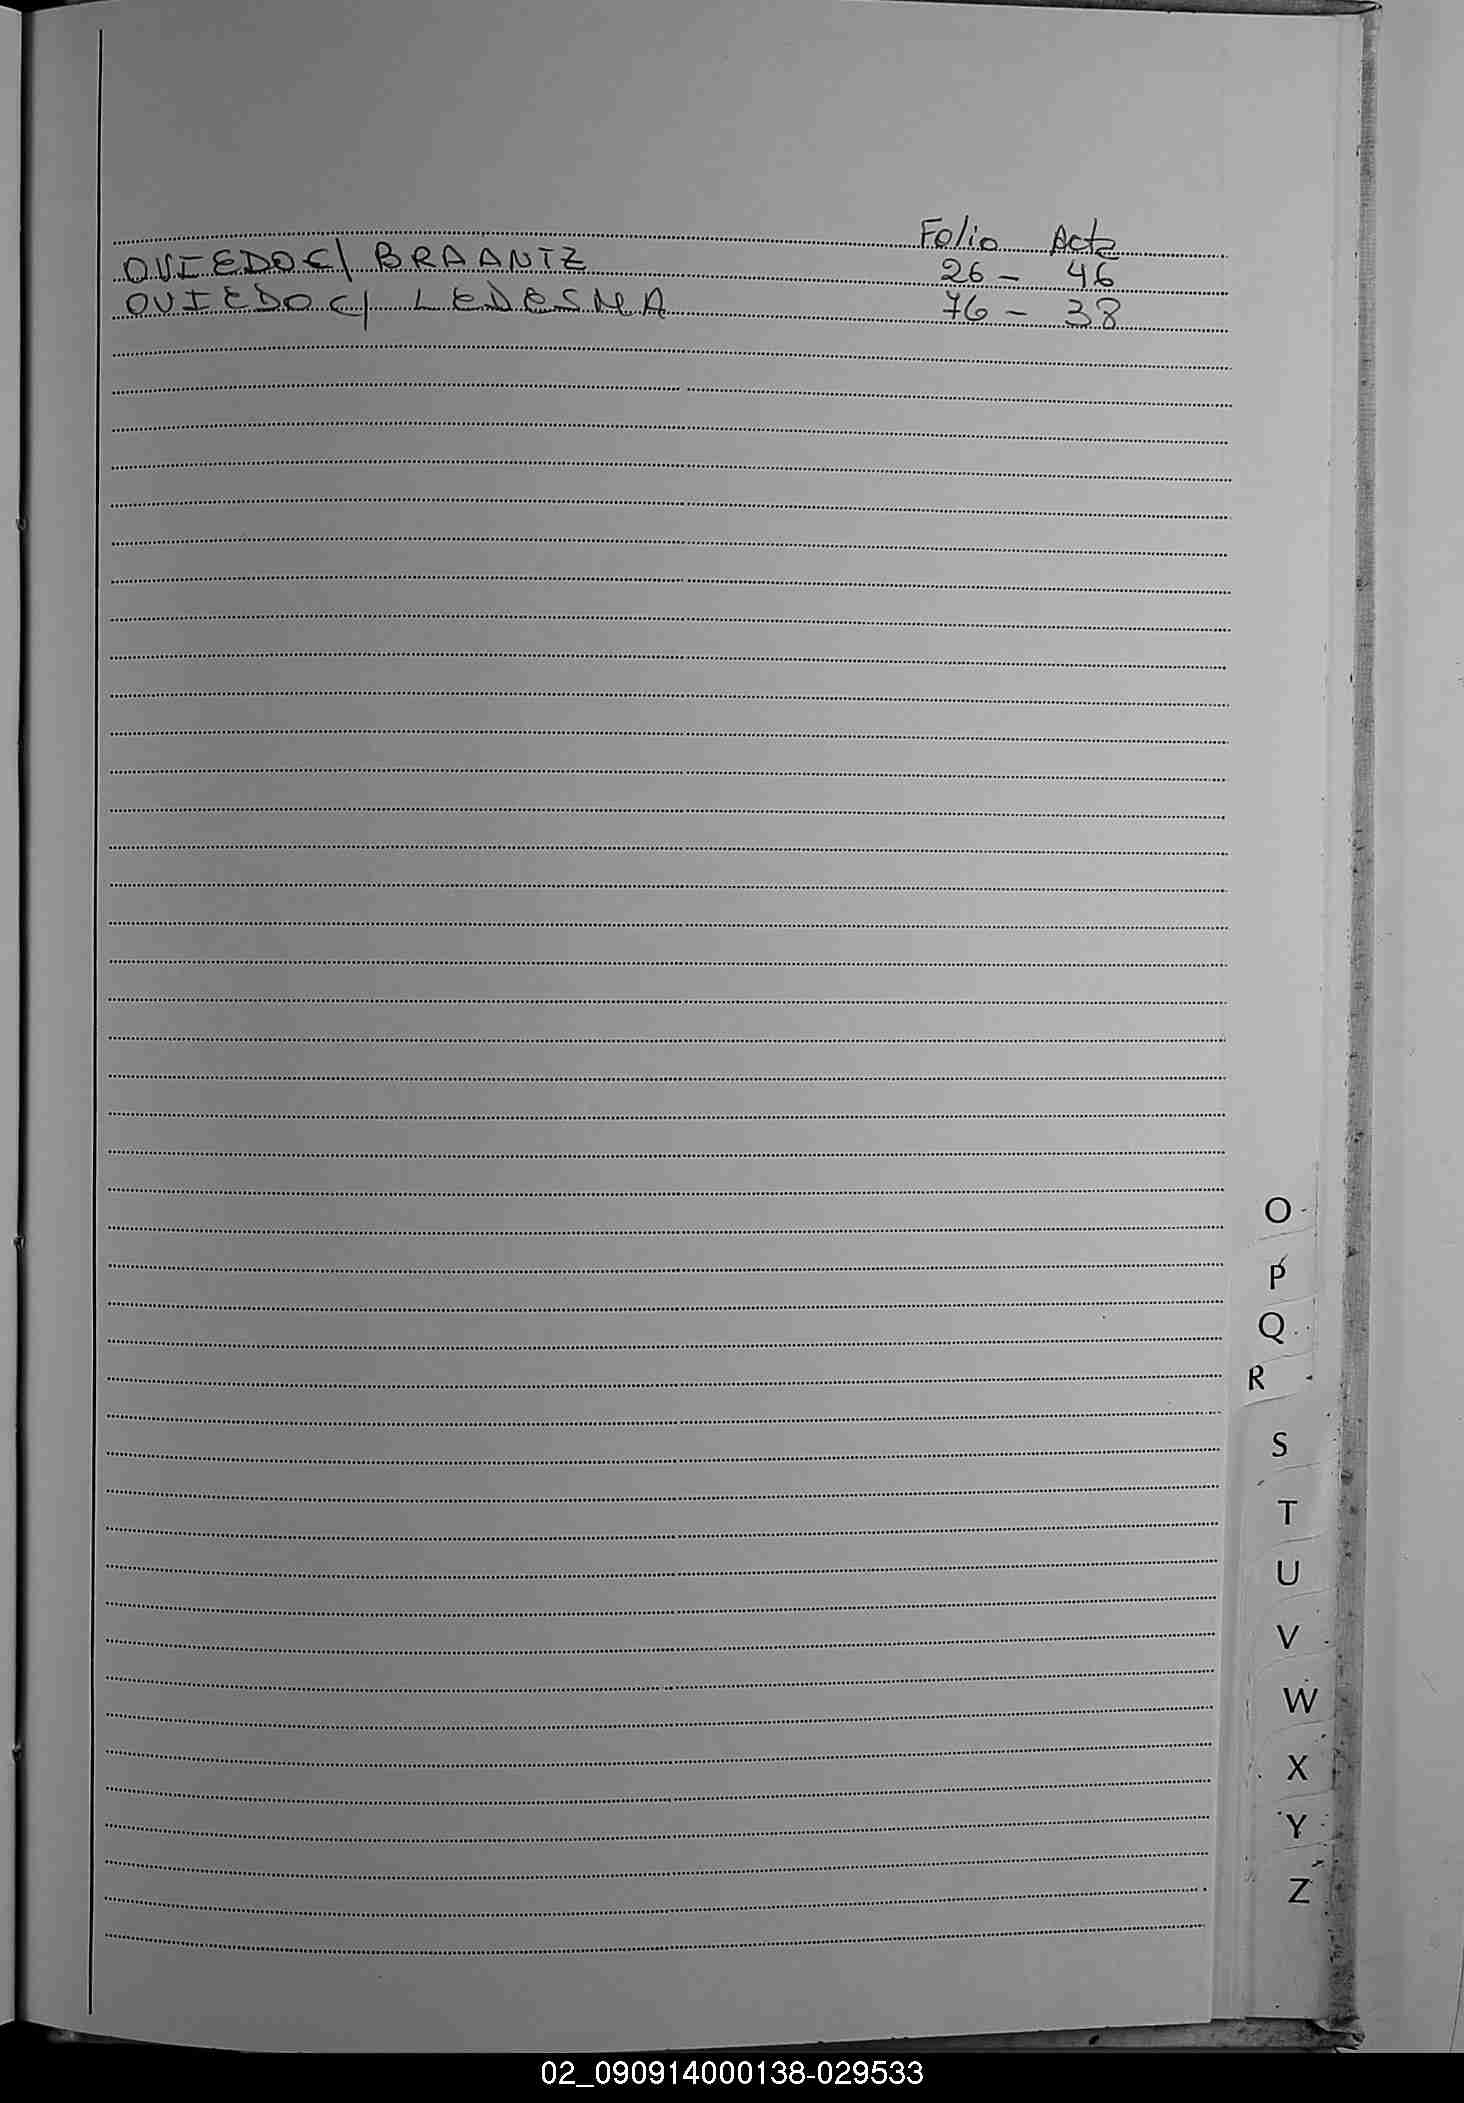 Folio Acta
OVIEDO C/ BRAANTZ 26 - 46
OVIEDO C/ LEDESMA 76 - 38
O
P
Q
R
S
T
U
V
W
X
Y
Z
02_090914000138-029533